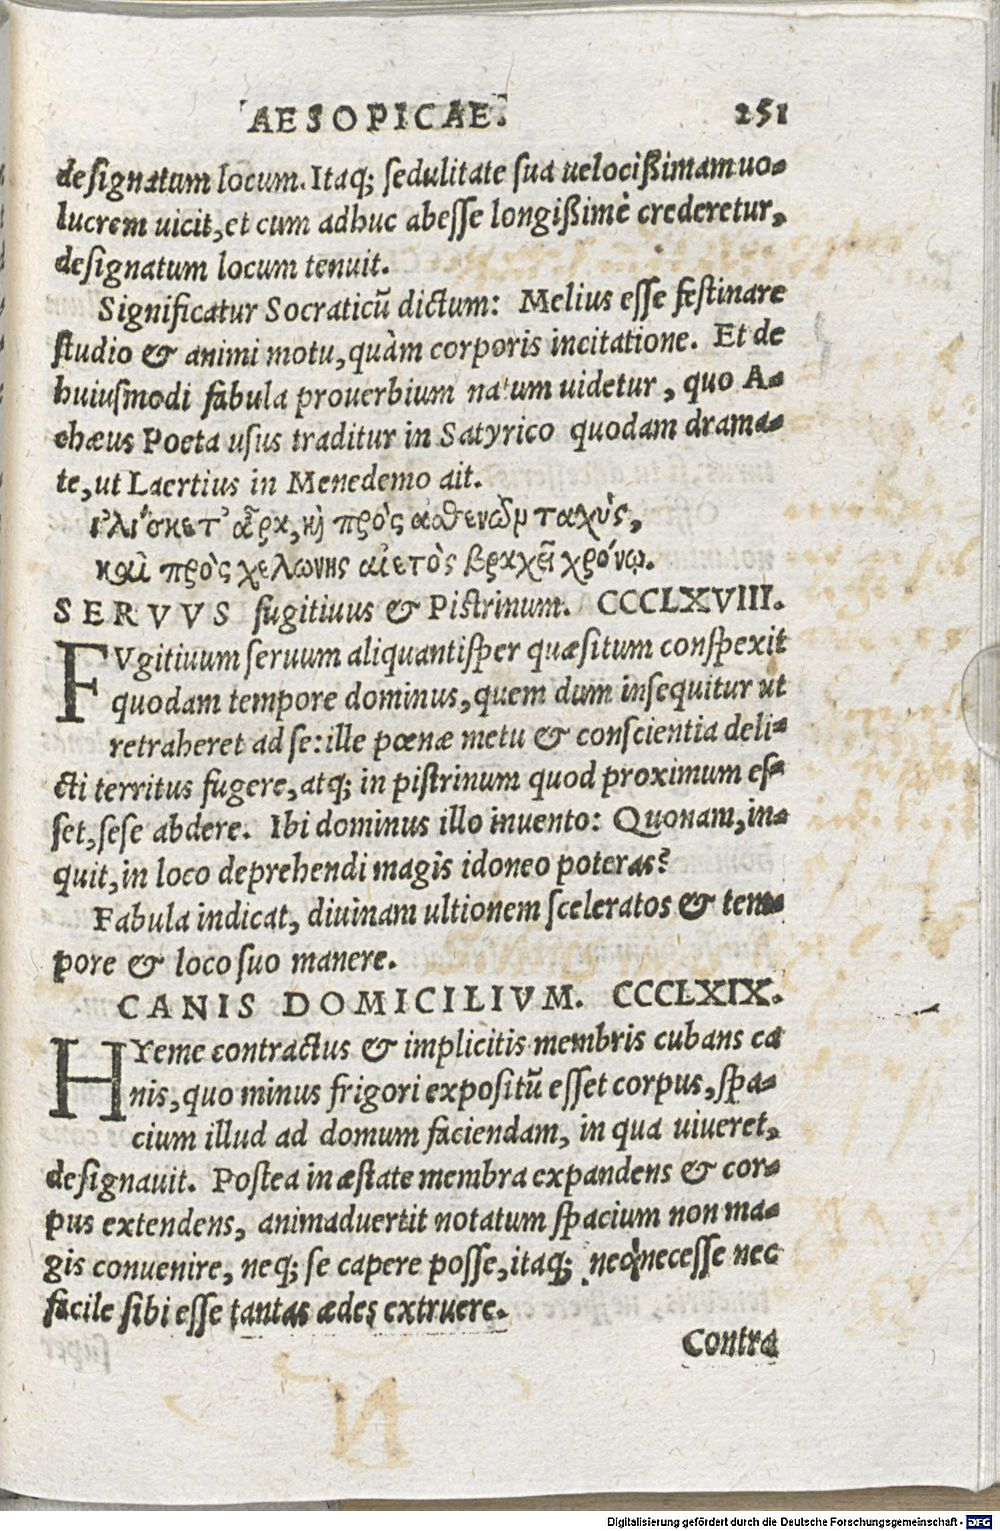 AESOPICAE. 251
designatum locum. Itaq; sedulitate sua uelocißimam uo-
lucrem uicit, et cum adhuc abesse longißimè crederetur,
designatum locum tenuit.
Significatur Socraticū dictum: Melius esse festinare
studio & animi motu, quàm corporis incitatione. Et de
huiusmodi fabula prouerbium natum uidetur, quo A-
chæus Poeta usus traditur in Satyrico quodam drama-
te, ut Laertius in Menedemo ait.
ἁλίσκετ᾽ ἆρα, καὶ πρὸς ἀσθενῶν ταχὺς,
καὶ πρὸς χελώνης αἰετὸς βραχεῖ χρόνῳ.
SERVVS fugitiuus & Pistrinum. CCCLXVIII.
FVgitiuum seruum aliquantisper quæsitum conspexit
quodam tempore dominus, quem dum insequitur ut
retraheret ad se: ille pœnæ metu & conscientia deli-
cti territus fugere, atq; in pistrinum quod proximum es-
set, sese abdere. Ibi dominus illo inuento: Quonam, in-
quit, in loco deprehendi magis idoneo poteras?
Fabula indicat, diuinam ultionem sceleratos & tem-
pore & loco suo manere.
CANIS DOMICILIVM. CCCLXIX.
HYeme contractus & implicitis membris cubans ca
nis, quo minus frigori expositū esset corpus, spa-
cium illud ad domum faciendam, in qua uiueret,
designauit. Postea in æstate membra expandens & cor-
pus extendens, animaduertit notatum spacium non ma-
gis conuenire, neq; se capere posse, itaq; neq; necesse nec
facile sibi esse tantas ædes extruere.
Contra
Digitalisierung gefördert durch die Deutsche Forschungsgemeinschaft - DFG